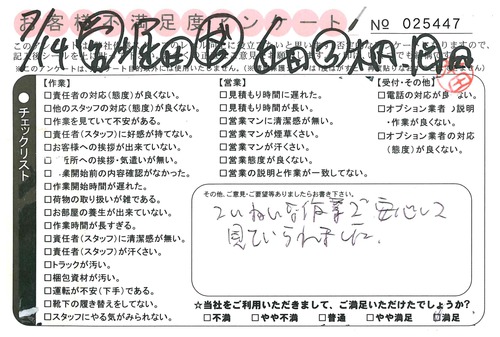 お客様不満足度アンケート
№ 025447
チェックリスト
【作業】
□責任者の対応(態度)が良くない。
□他のスタッフの対応(態度)が良くない。
□作業を見ていて不安がある。
□責任者(スタッフ)に好感が持てない。
□お客様への挨拶が出来ていない。
所への挨拶・気遣いが無い。
業開始前の内容確認がなかった。
□作業開始時間が遅れた。
□荷物の取り扱いが雑である。
□お部屋の養生が出来ていない。
□作業時間が長すぎる。
□責任者(スタッフ)に清潔感が無い。
□責任者(スタッフ)が汗くさい。
□トラックが汚い。
□梱包資材が汚い。
□運転が不安(下手)である。
□靴下の履き替えをしてない。
□スタッフにやる気がみられない。
【営業】
□見積もり時間に遅れた。
□見積もり時間が長い。
□営業マンに清潔感が無い。
□営業マンが煙草くさい。
□営業マンが汗くさい。
□営業態度が良くない。
□営業の説明と作業が一致してない。
【受付・その他】
□電話の対応が良くない。
□オプション業者の説明
・作業が良くない。
□オプション業者の対応
(態度)が良くない。
その他、ご意見・ご要望等ありましたらお書き下さい。
ていねいな作業で安心して
見ていられました。
☆当社をご利用いただきまして、ご満足いただけたでしょうか?
□不満 □やや不満 □普通 □やや満足 □満足